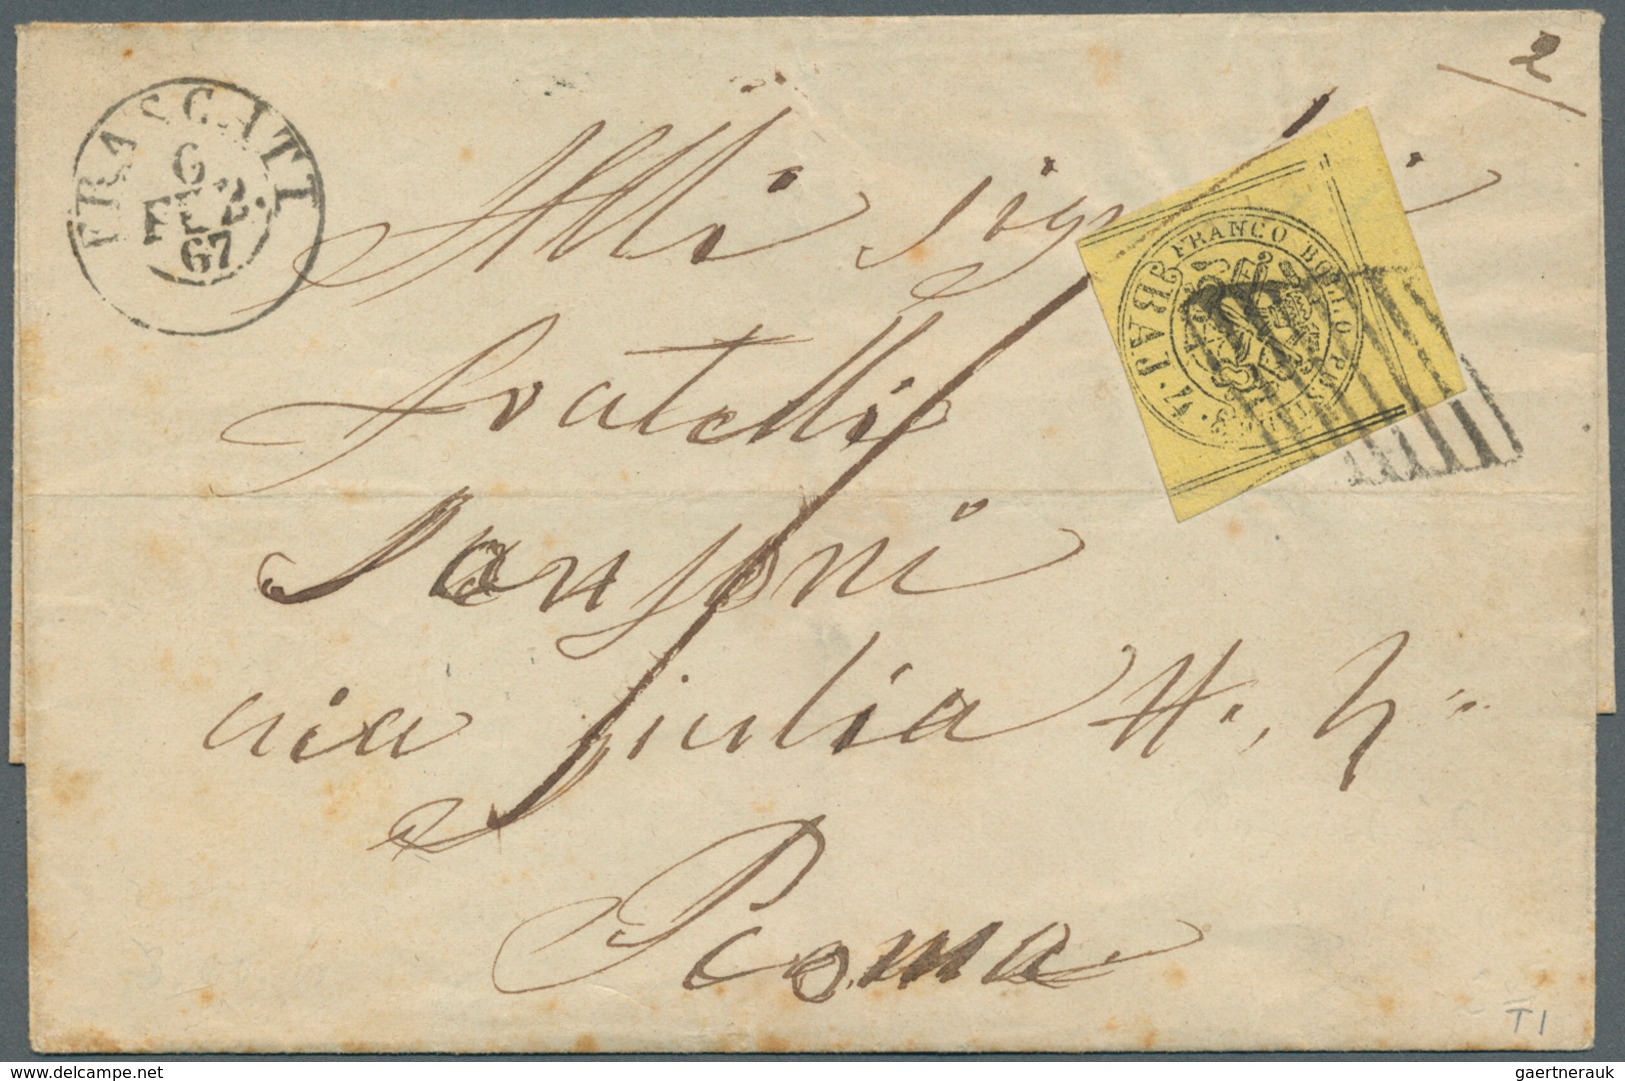 2
FRASCATI
6
FEB.
67
Alli sig.ri
FRANCO BOLLO POSTALE
4. BAJ. 3
fratelli
Sansoni
via Giulia N.
Roma
T1
www.delcampe.net
gaertnerauk